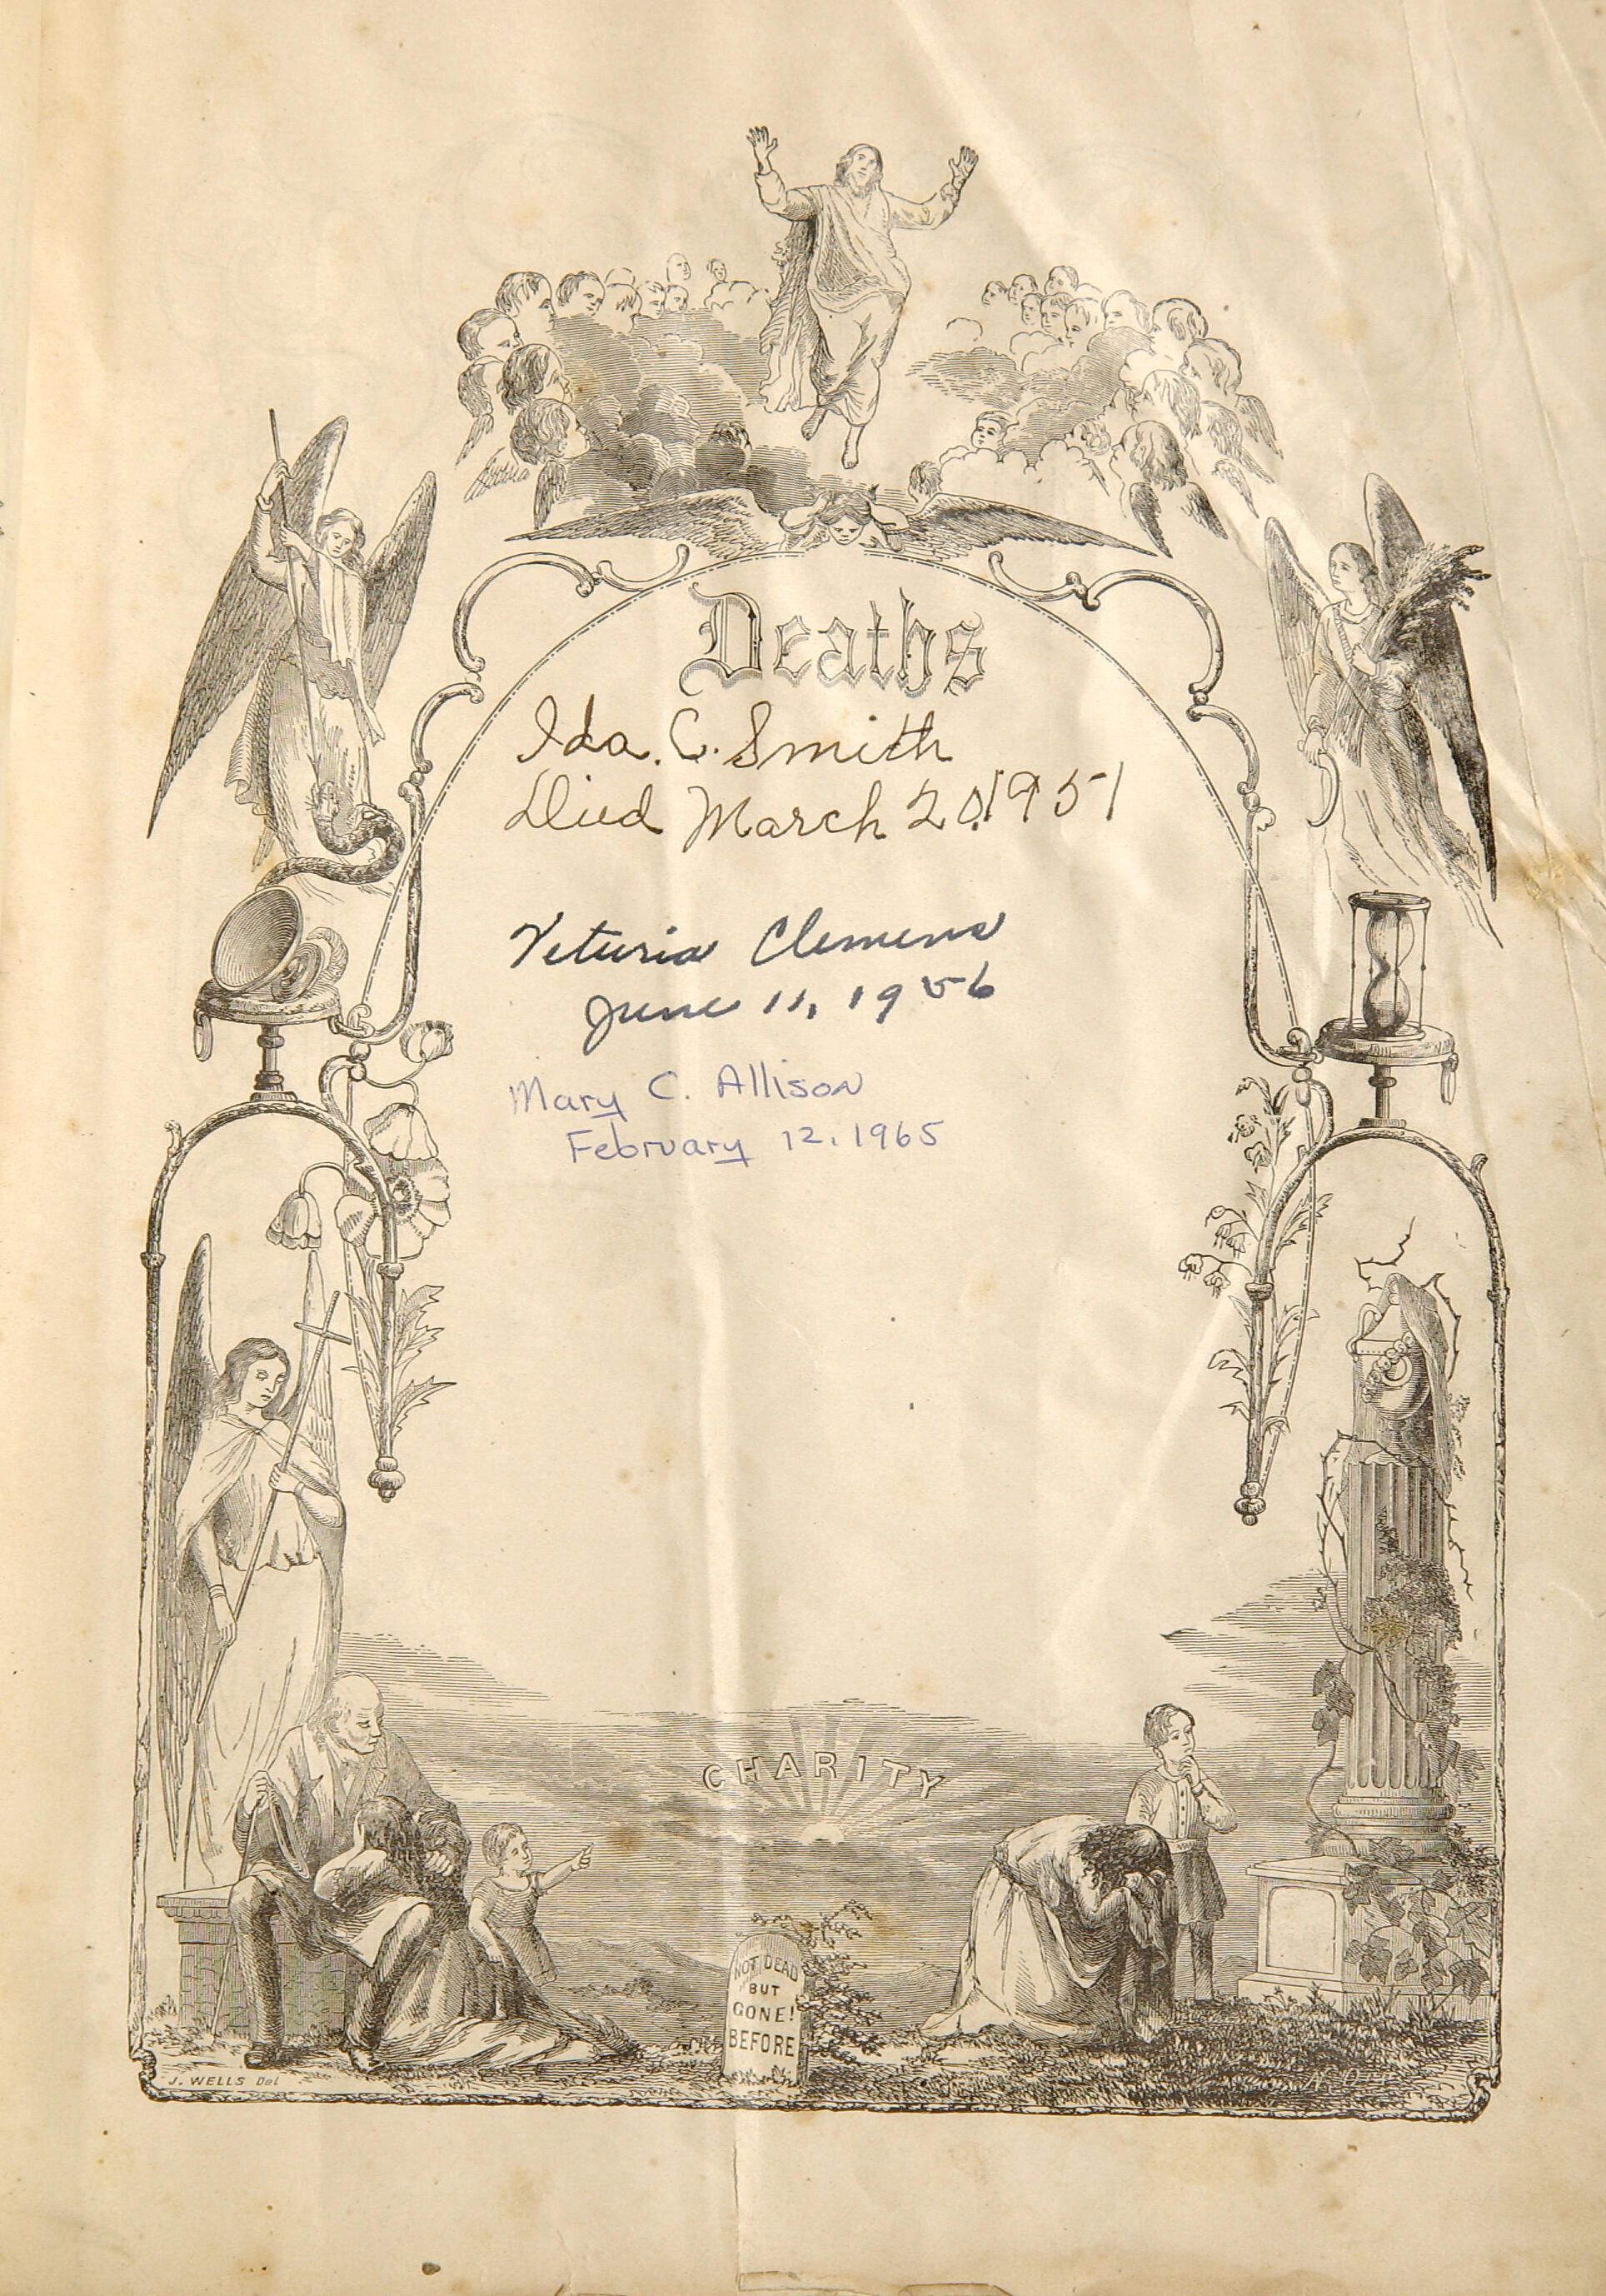 Deaths
Ida. C. Smith
Died March 20, 1951
Veturia Clemens
June 11, 1956
Mary C. Allison
February 12, 1965
CHARITY
NOT DEAD
BUT
GONE!
BEFORE
J. WELLS Del